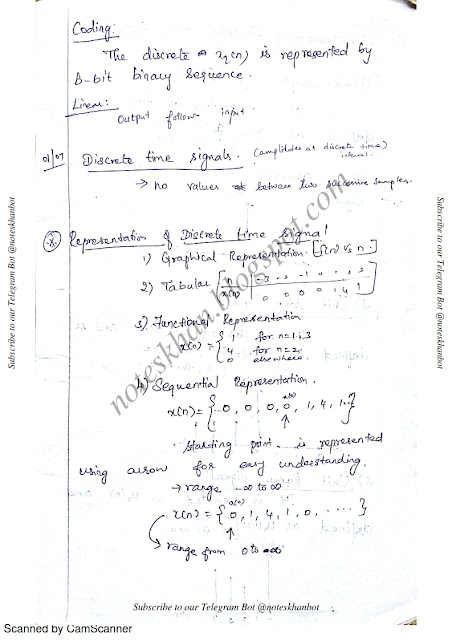 Coding:
The discrete xq(n) is represented by
B-bit binary sequence.
Linear:
output follow input
01/07 Discrete time signals. (amplitudes at discrete time) interval.
→ no values between two successive samples.
Representation of Discrete time signal
1) Graphical Representation. [x(n) vs n.]
2) Tabular n -3 -2 -1 0 1 2 3
x(n) 0 0 0 0 1 4 1
3) Functional Representation
x(n) = { 1 for n=1,3
4 for n=2
0 elsewhere.
4) Sequential Representation.
x(n) = {...0, 0, 0, 0, 1, 4, 1..}
↑
starting point is represented
using arrow for easy understanding.
→ range -∞ to ∞
x(n) = {0, 1, 4, 1, 0, .....}
↑
→ range from 0 to ∞
noteskhan.blogspot.com
Subscribe to our Telegram Bot @noteskhanbot
Subscribe to our Telegram Bot @noteskhanbot
Subscribe to our Telegram Bot @noteskhanbot
Scanned by CamScanner